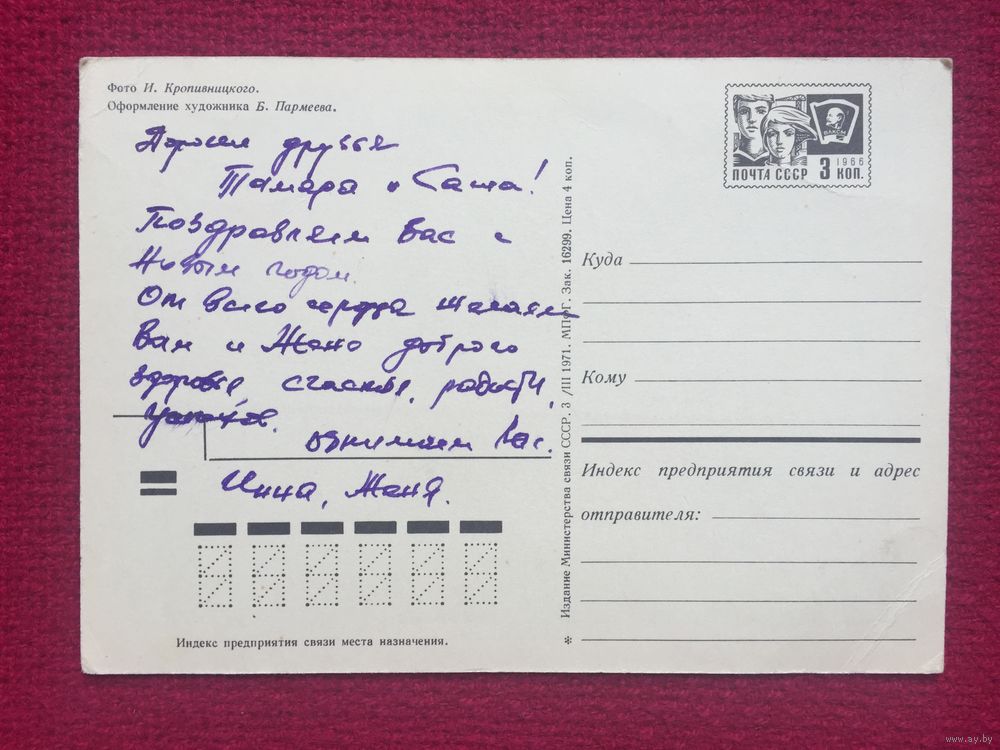 Фото И. Кропивницкого.
Оформление художника Б. Пармеева.
Дорогие друзья
Тамара и Саша!
Поздравляем Вас с
Новым годом.
От всего сердца желаем
Вам и Жене доброго
здоровья счастья, радости,
успехов.
обнимаем Вас.
Инна, Женя.
Индекс предприятия связи места назначения.
✻ Издание Министерства связи СССР. 3/III 1971. МПФГ. Зак. 16299. Цена 4 коп.
ВЛКСМ
1966
ПОЧТА СССР 3 КОП.
Куда
Кому
Индекс предприятия связи и адрес
отправителя:
www.ay.by